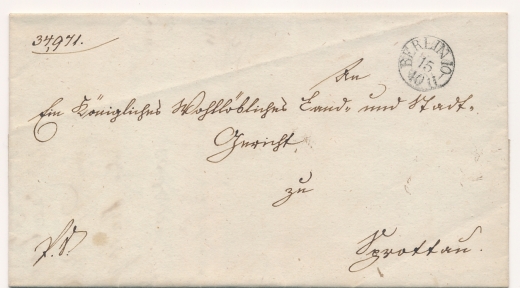 34,971.
BERLIN 10-11
15
10
An
Ein Königliches Wohllöbliches Land- und Stadt-
Gericht
zu
P. S.
Sprottau.